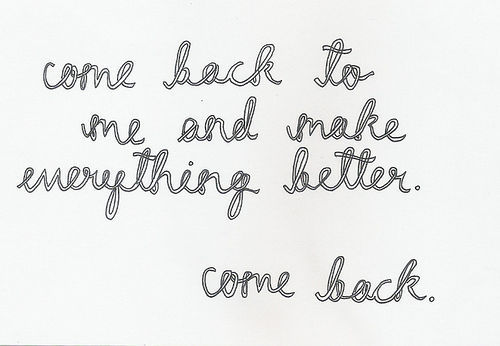 come back to
me and make
everything better.
come back.